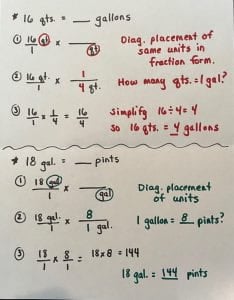 * 16 qts. = ___ gallons
① 16 qt / 1 x ___ / qt
Diag. placement of
same units in
fraction form.
② 16 qt. / 1 x 1 / 4 qt.
How many qts. = 1 gal.?
③ 16/1 x 1/4 = 16/4
Simplify 16÷4=4
so 16 qts. = 4 gallons
* 18 gal. = ___ pints
① 18 gal / 1 x ___ / gal
Diag. placement
of units
② 18 gal. / 1 x 8 / 1 gal.
1 gallon = 8 pints?
③ 18/1 x 8/1 = 18x8 = 144
18 gal. = 144 pints